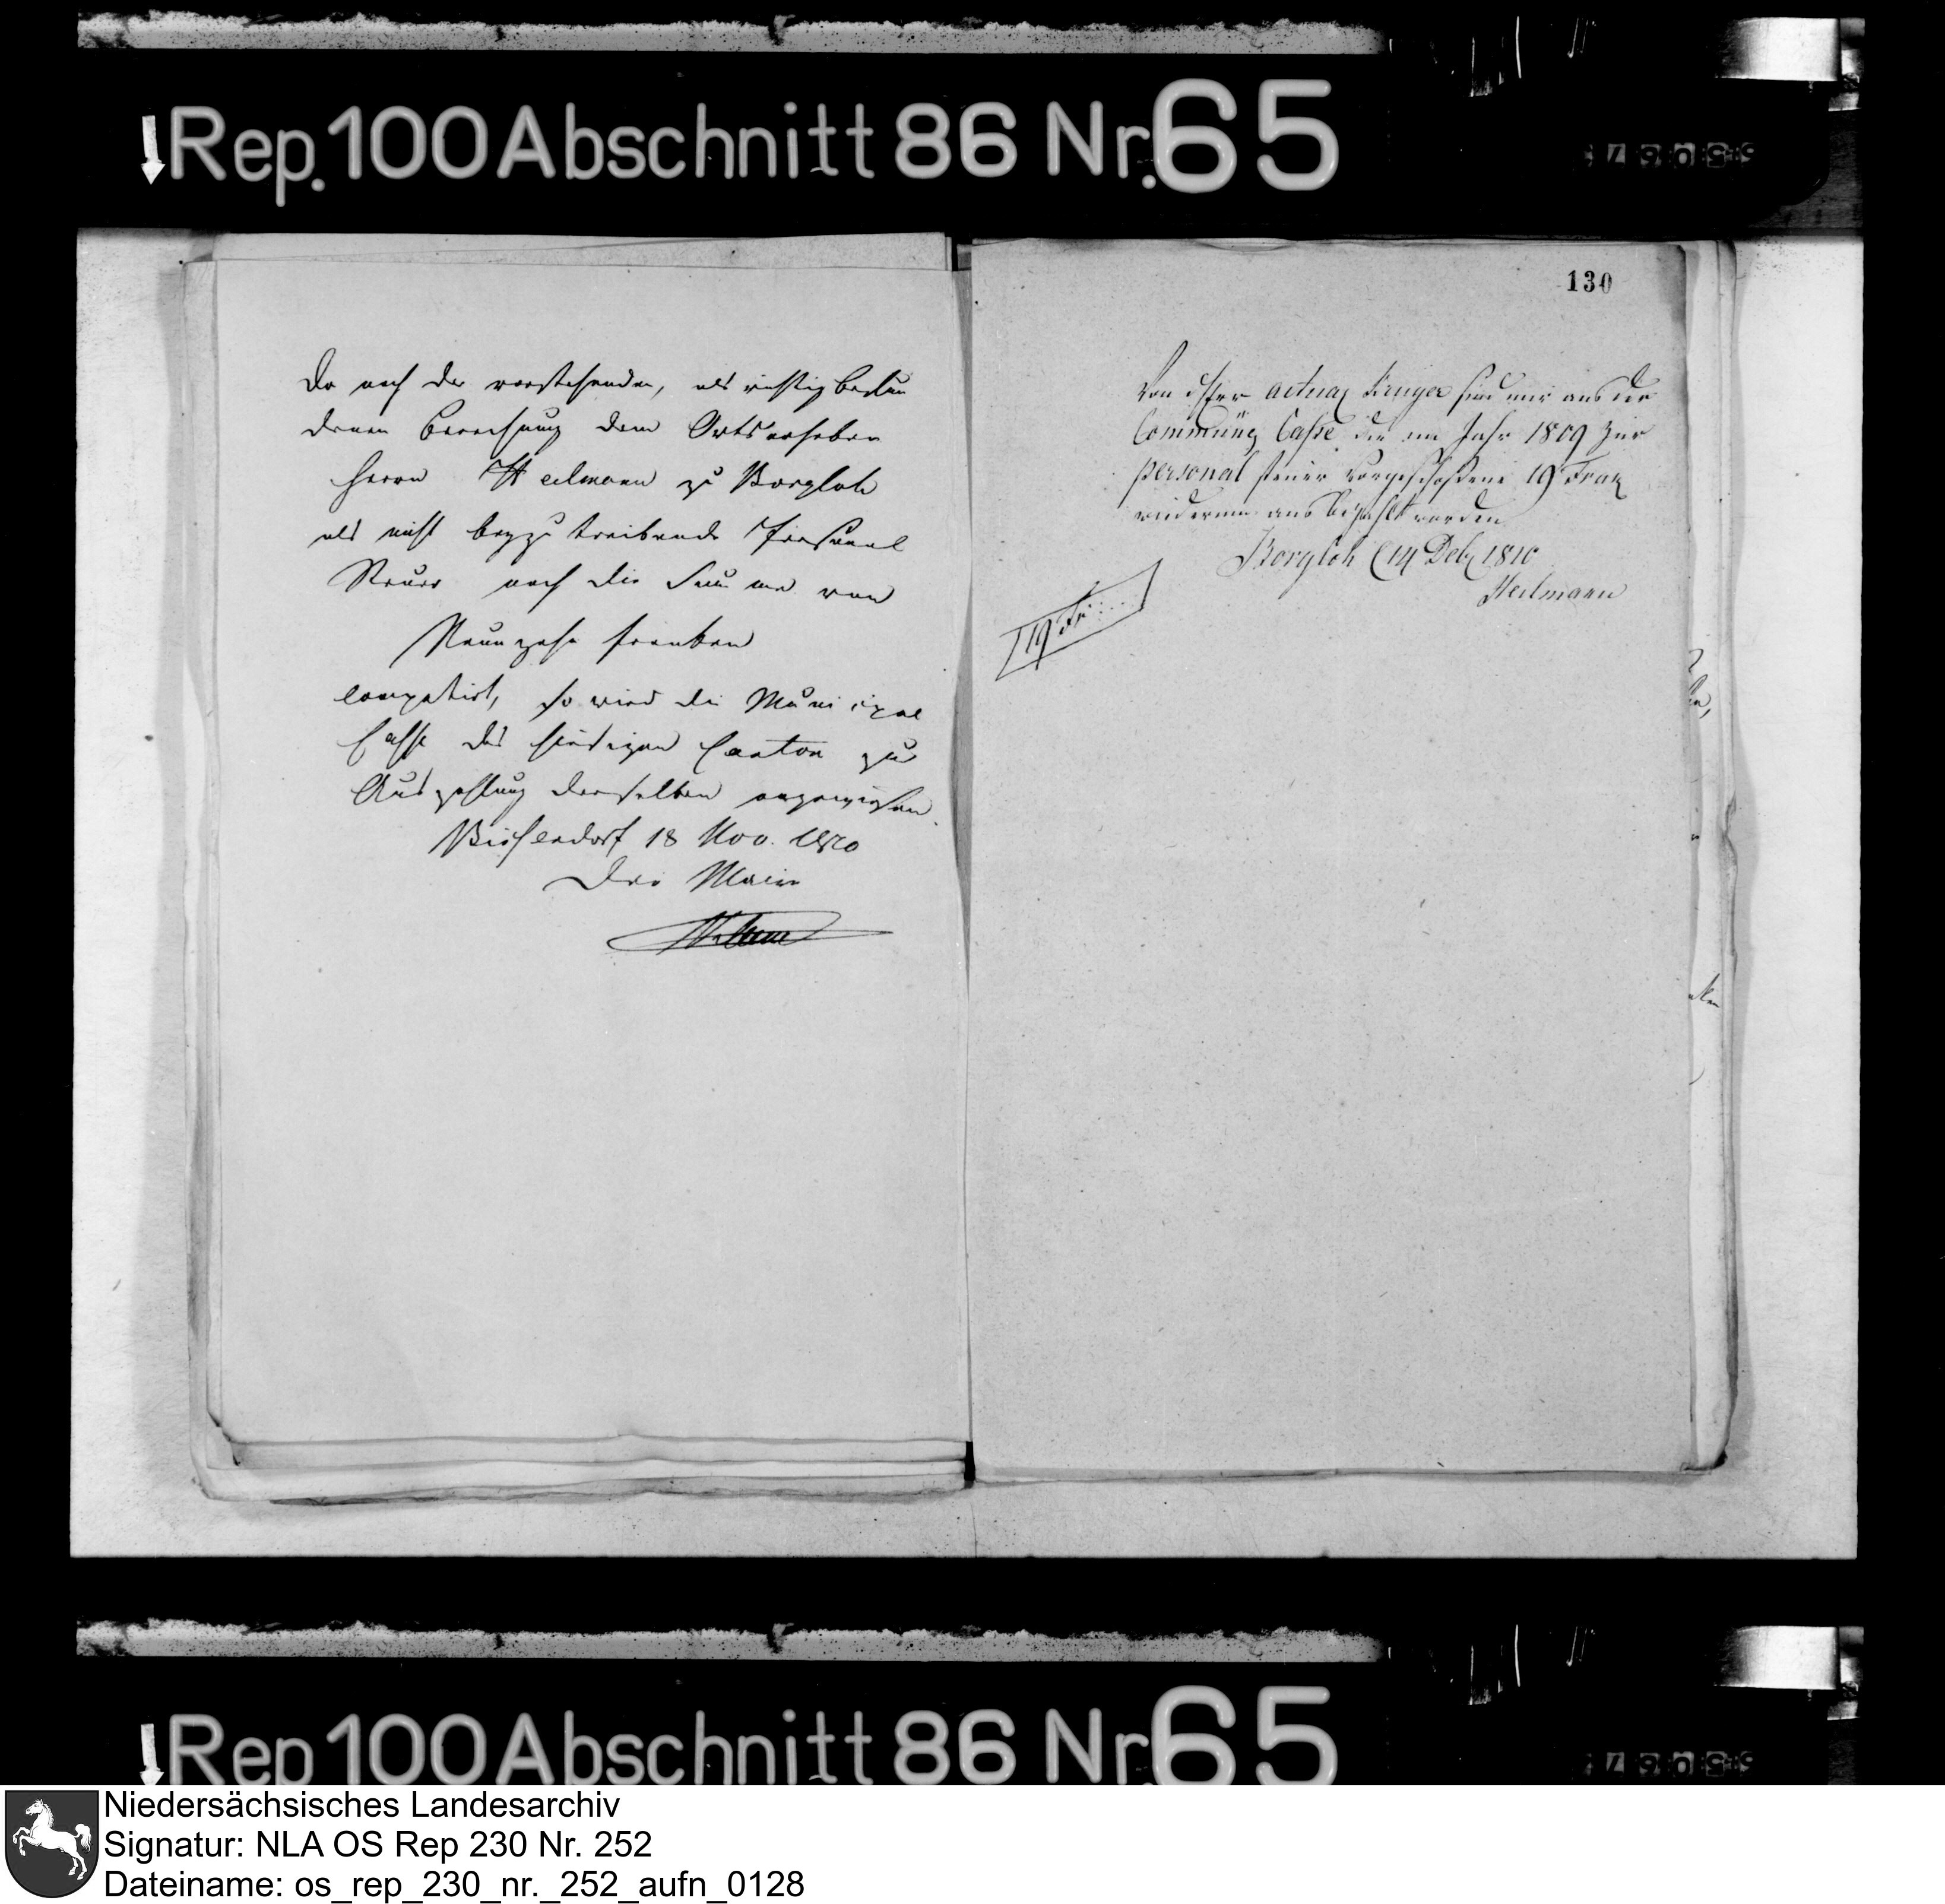 Rep. 100 Abschnitt 86 Nr. 65
Da nach der vorstehenden, als richtig befun
denen Berechnung dem Ortserheber
Herrn Heilmann zu Borgloh
als nicht beyzutreibende Personal
Steuer noch die Summe von
Neunzehn Franken
competirt, so wird die Municipal
Casse des hiesigen Canton zur
Auszahlung derselben angewiesen.
Bissendorf 18 Nov. 1810
Der Maire
130
Von Herr actuar Kruger sind mir aus der
Commüng Casse die im Jahr 1809 zur
personal steuer vorgeschossene 19 Frank
wiederum aus bezahlt worden
Borgloh 14 Deb 1810
Heilmann
19 Fr
Rep 100 Abschnitt 86 Nr. 65
Niedersächsisches Landesarchiv
Signatur: NLA OS Rep 230 Nr. 252
Dateiname: os_rep_230_nr._252_aufn_0128